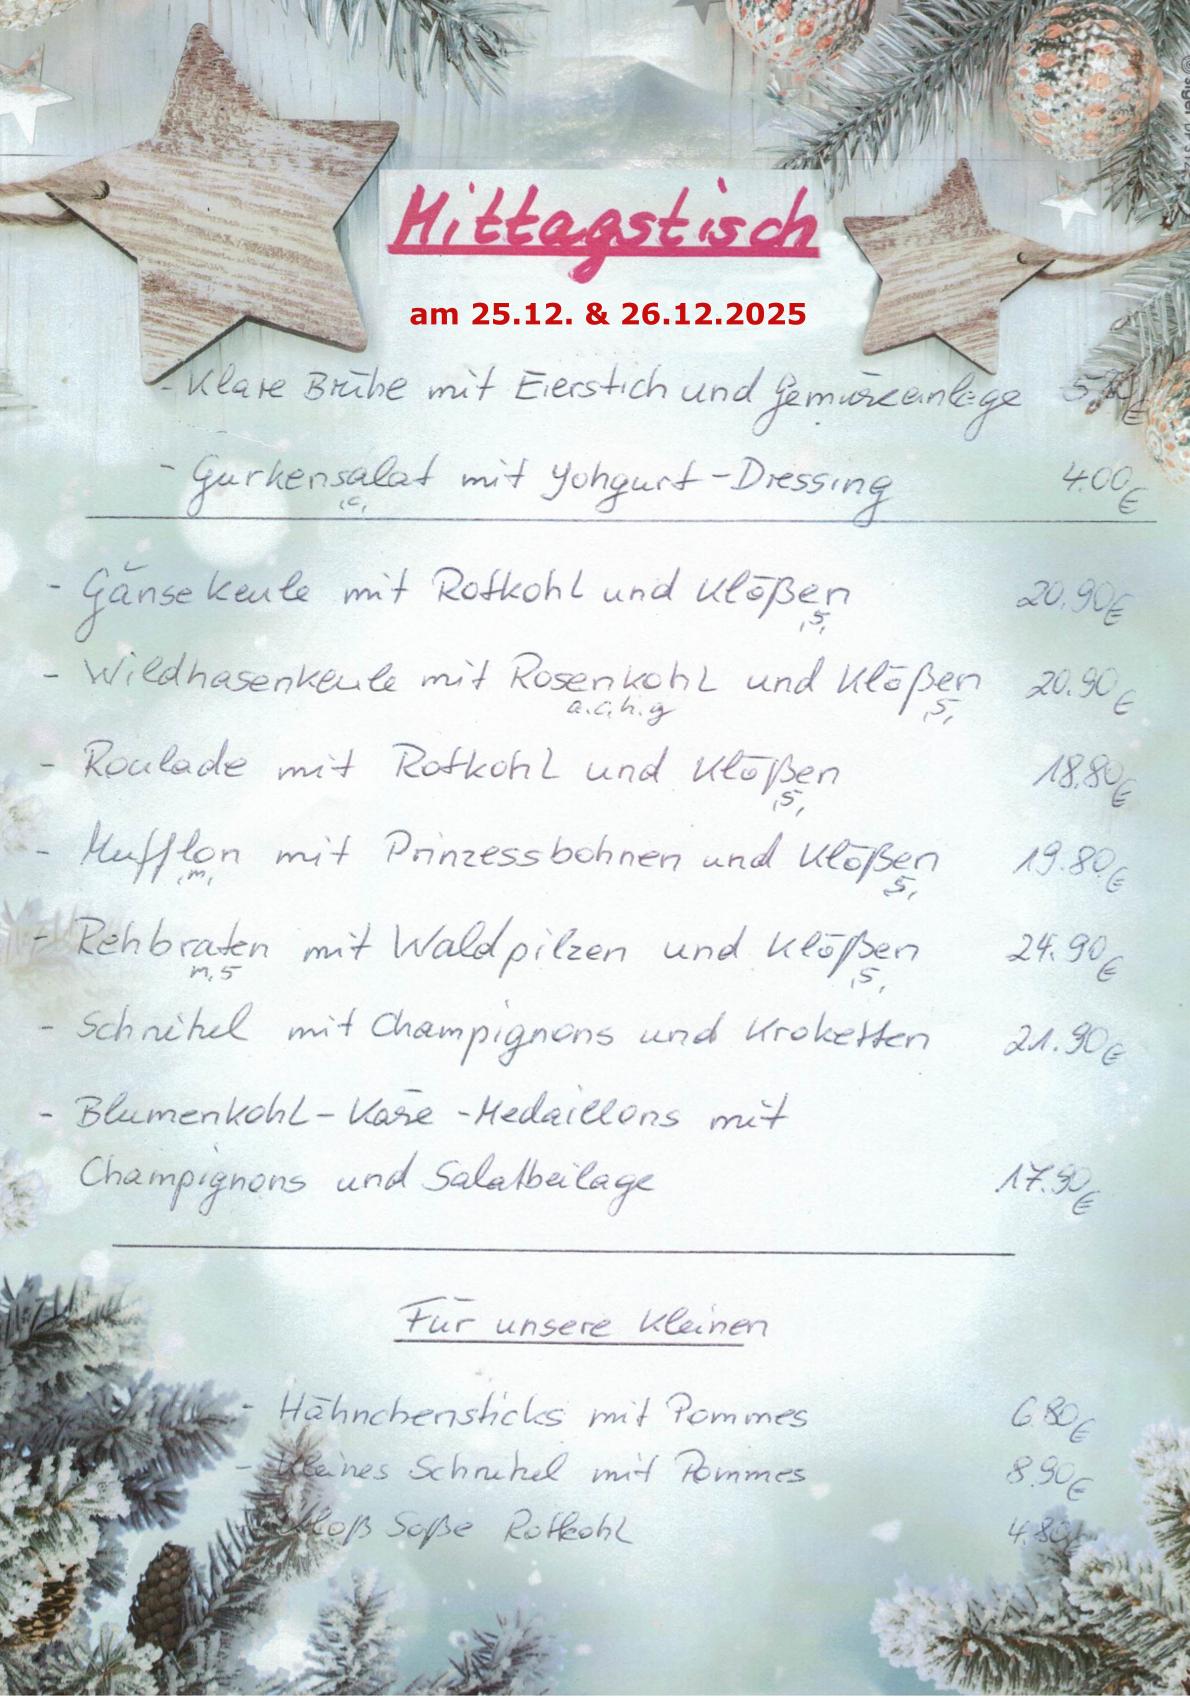 Mittagstisch
am 25.12. & 26.12.2025
- Klare Brühe mit Eierstich und Gemüseeinlage €
- Gurkensalat mit Yohgurt-Dressing 4.00€
,c,
- Gänsekeule mit Rotkohl und Klößen 20.90€
,5,
- Wildhasenkeule mit Rosenkohl und Klößen 20.90€
a.c.h.g ,5,
- Roulade mit Rotkohl und Klößen 18.80€
,5,
- Mufflon mit Prinzessbohnen und Klößen 19.80€
,m, 5,
- Rehbraten mit Waldpilzen und Klößen 24.90€
m,5 ,5,
- Schnitzel mit Champignons und Kroketten 21.90€
- Blumenkohl-Käse-Medaillons mit
Champignons und Salatbeilage 17.90€
Für unsere Kleinen
- Hähnchensticks mit Pommes 6.80€
- Kleines Schnitzel mit Pommes 8.90€
Kloß Soße Rotkohl 4.80€